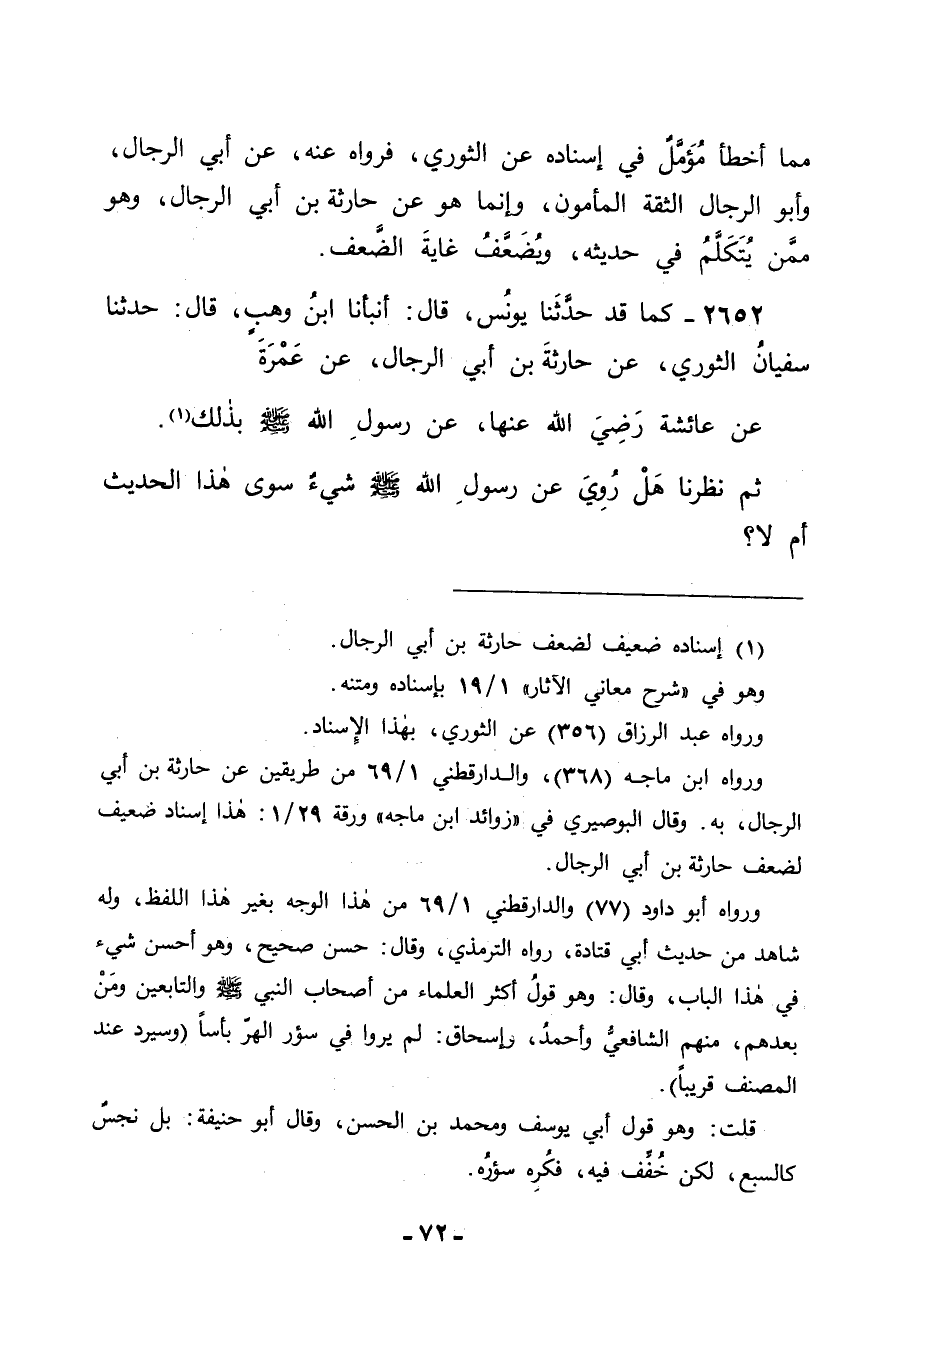 مما أخطأ مُؤمَّلٌ في إسناده عن الثوري، فرواه عنه، عن أبي الرجال،
وأبو الرجال الثقة المأمون، وإنما هو عن حارثة بن أبي الرجال، وهو
ممَّن يُتَكَلَّمُ في حديثه، ويُضَعَّفُ غايةَ الضَّعف.
٢٦٥٢ ـ كما قد حدَّثَنا يونُس، قال: أنبأنا ابنُ وهبٍ، قال: حدثنا
سفيانُ الثوري، عن حارثةَ بن أبي الرجال، عن عَمْرَةَ
عن عائشة رَضِيَ الله عنها، عن رسولِ الله ﷺ بذٰلك(١).
ثم نظرنا هَلْ رُوِيَ عن رسولِ الله ﷺ شيءٌ سوى هٰذا الحديث
أم لا؟
(١) إسناده ضعيف لضعف حارثة بن أبي الرجال.
وهو في «شرح معاني الآثار» ١٩/١ بإسناده ومتنه.
ورواه عبد الرزاق (٣٥٦) عن الثوري، بهٰذا الإسناد.
ورواه ابن ماجه (٣٦٨)، والدارقطني ٦٩/١ من طريقين عن حارثة بن أبي
الرجال، به. وقال البوصيري في «زوائد ابن ماجه» ورقة ١/٢٩: هٰذا إسناد ضعيف
لضعف حارثة بن أبي الرجال.
ورواه أبو داود (٧٧) والدارقطني ٦٩/١ من هٰذا الوجه بغير هٰذا اللفظ، وله
شاهد من حديث أبي قتادة، رواه الترمذي، وقال: حسن صحيح، وهو أحسن شيء
في هٰذا الباب، وقال: وهو قولُ أكثر العلماء من أصحاب النبي ﷺ والتابعين ومَنْ
بعدهم، منهم الشافعيُّ وأحمدُ، وإسحاق: لم يروا في سؤر الهرّ بأساً (وسيرد عند
المصنف قريباً).
قلت: وهو قول أبي يوسف ومحمد بن الحسن، وقال أبو حنيفة: بل نجسٌ
كالسبع، لكن خُفِّف فيه، فكُرِه سؤرُه.
ـ ٧٢ ـ